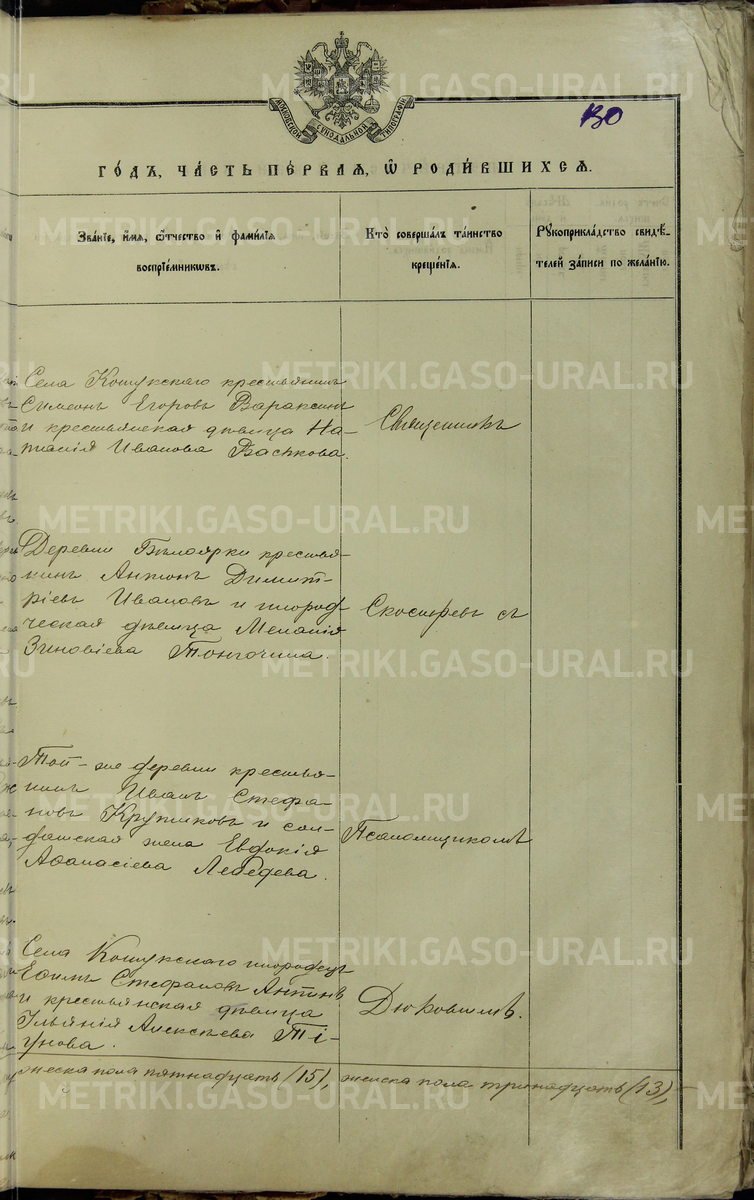 МОСКОВСКОЙ СУНОДАЛЬНОЙ ТИПОГРАФІИ
130
ГО́ДЪ, ЧА́СТЬ ПЕ́РВАЯ, Ѡ҆ РОДИ́ВШИХСЯ.
Зва́нїе, и҆́мя, ѻ҆́тчество и҆ фами́лїя
воспрїе́мникѡвъ.
Кто̀ соверша́лъ та́инство
креще́нїя.
Рꙋкоприкла́дство свидѣ́-
телей за́писи по жела́нїю.
Села Кошукскаго крестьянинъ
Симеонъ Егоровъ Вараксинъ
и крестьянская дѣвица На-
талія Иванова Васькова.
Священникъ
Деревни Бѣлоярки крестья-
нинъ Антонъ Димит-
ріевъ Ивановъ и инород-
ческая дѣвица Меланія
Зиновіева
Скосыревъ съ
Той-же деревни крестья-
нинъ Иванъ Стефа-
новъ Крутиковъ и сол-
датская жена Евдокія
Аѳанасіева Лебедева.
Псаломщикомъ
Села Кошукскаго инородецъ
Ефимъ Стефановъ
и крестьянская дѣвица
Алексѣева Ті-
унова.
жеска пола пятнадцать (15), женска пола тринадцать (13),
METRIKI.GASO-URAL.RU